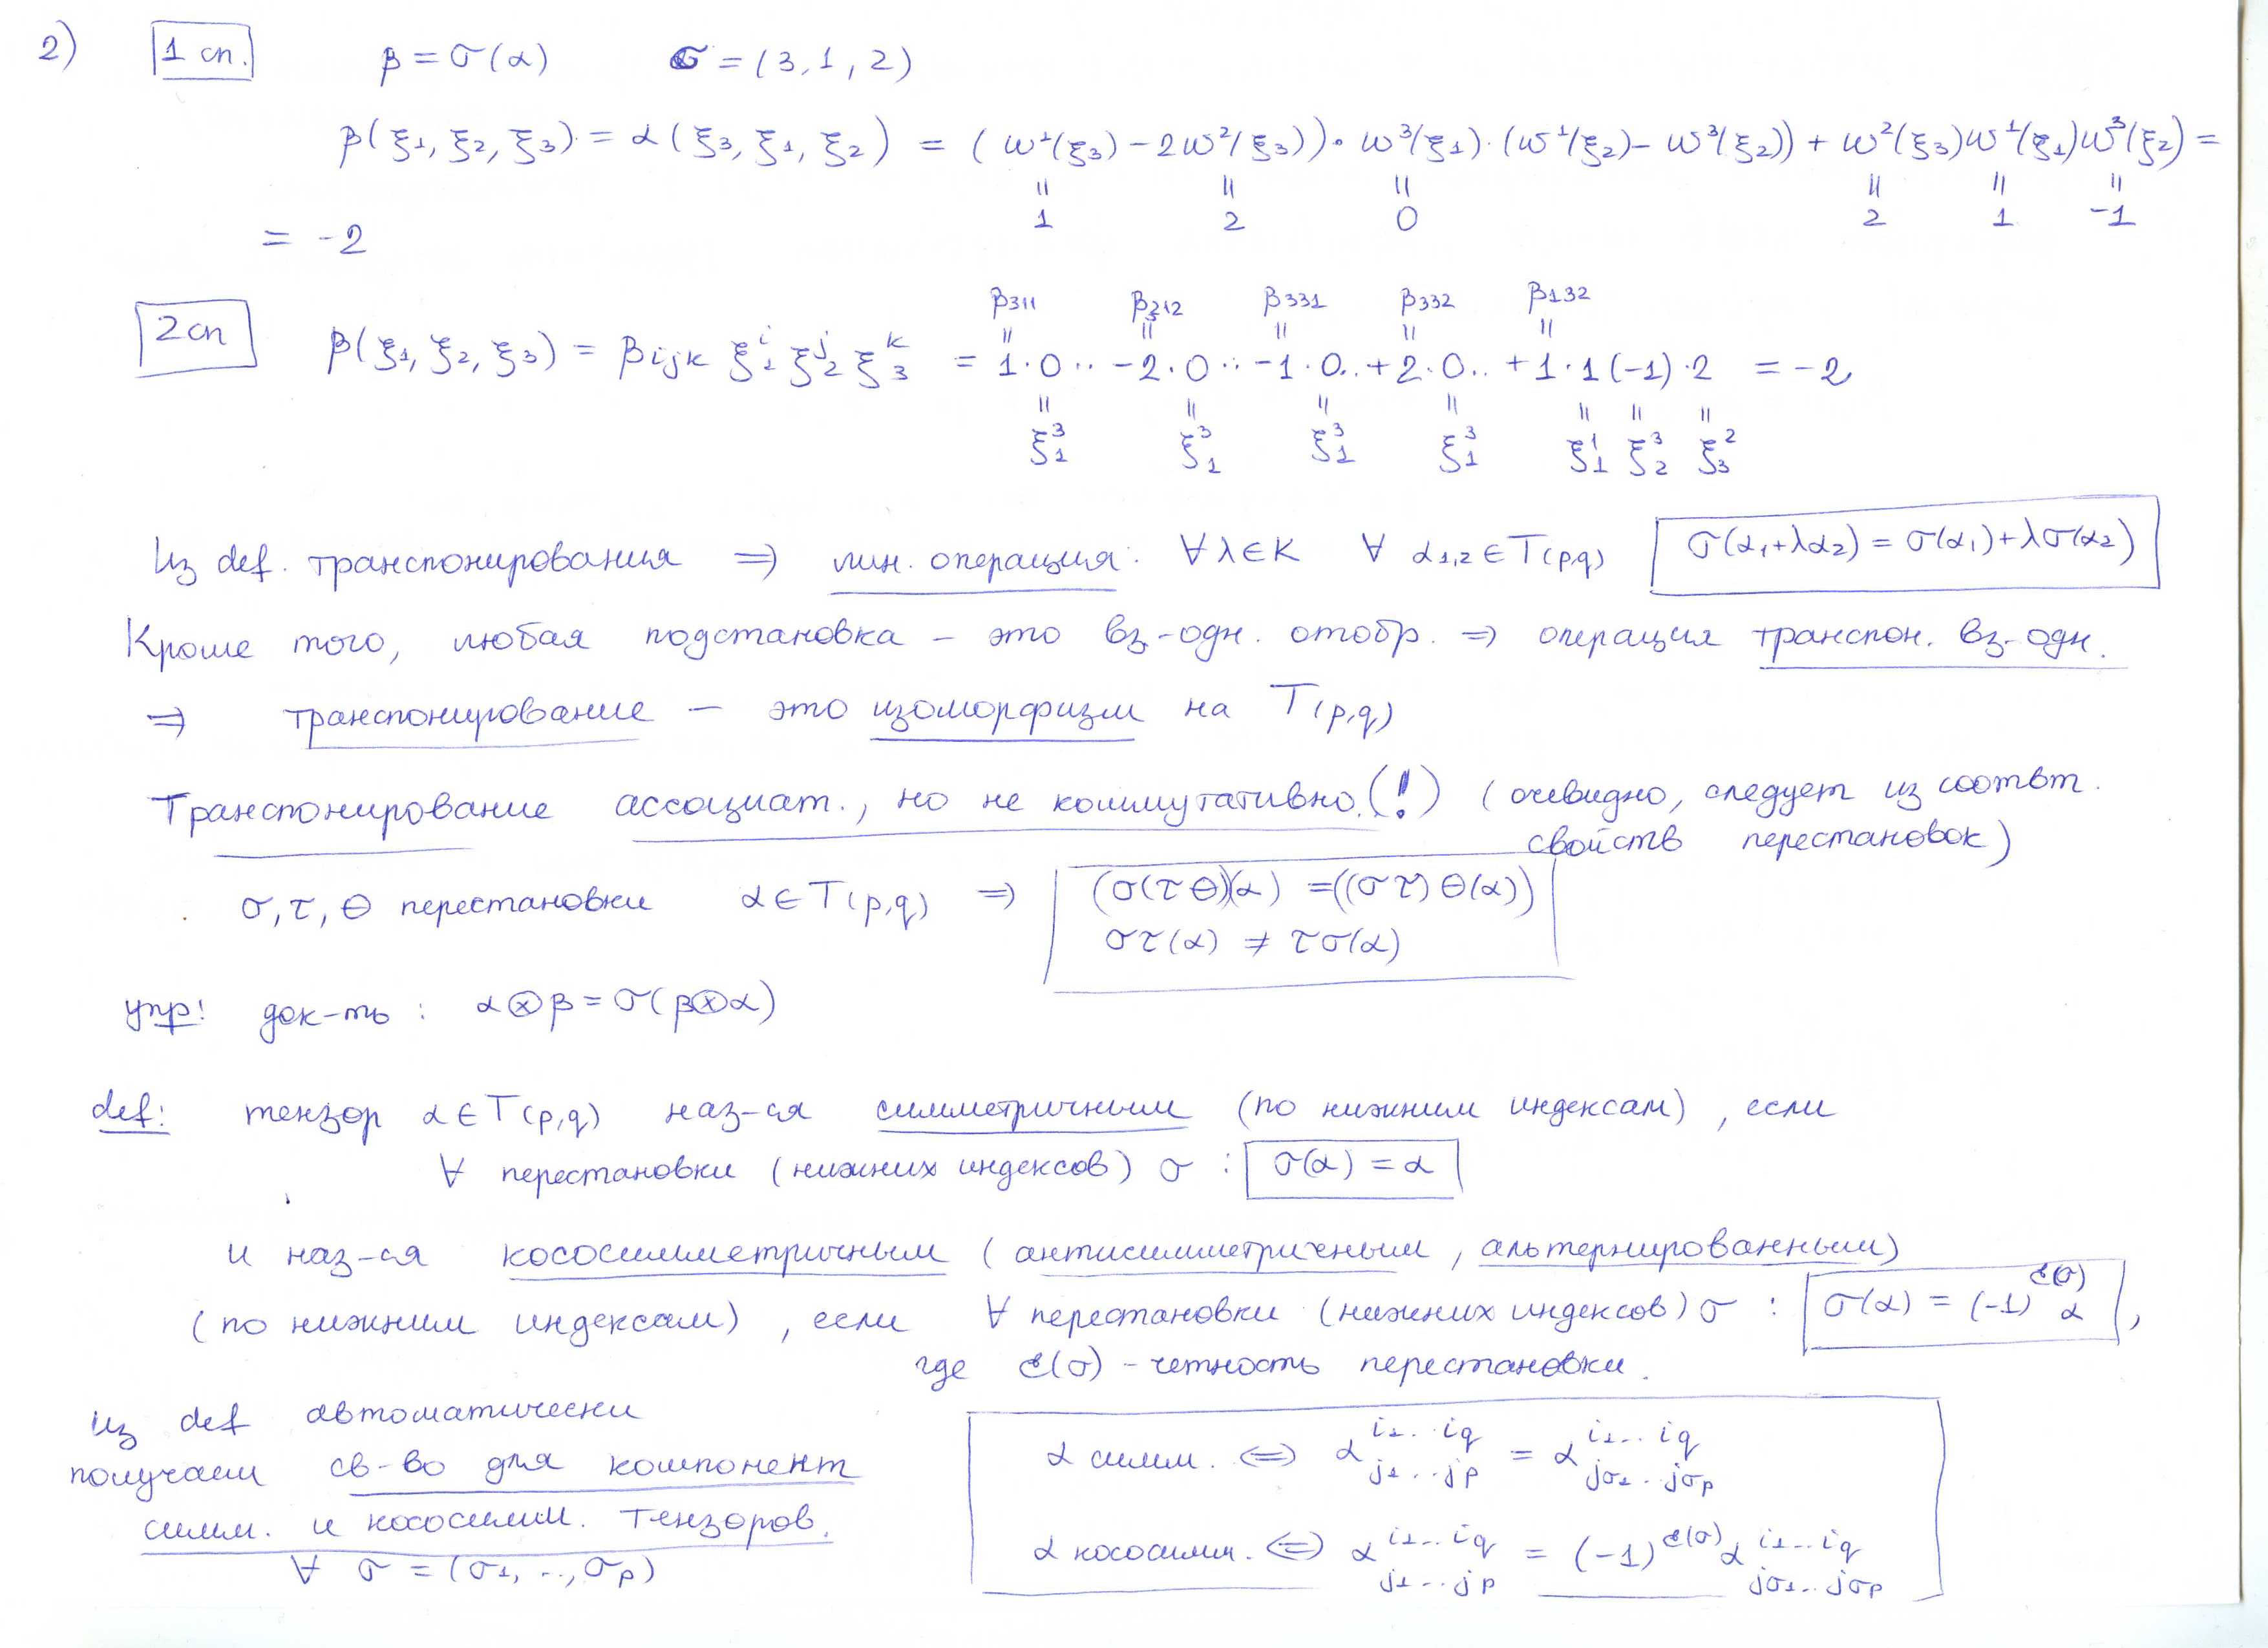 2) 1 сп. β = σ(α) σ = (3, 1, 2)
β(ξ₁, ξ₂, ξ₃) = α(ξ₃, ξ₁, ξ₂) = (ω¹(ξ₃) − 2ω²(ξ₃))·ω³(ξ₁)·(ω¹(ξ₂) − ω³(ξ₂)) + ω²(ξ₃)ω¹(ξ₁)ω³(ξ₂) =
|| || || || || ||
1 2 0 2 1 -1
= -2
β₃₁₁ β₃₁₂ β₃₃₁ β₃₃₂ β₁₃₂
|| || || || ||
2 сп β(ξ₁, ξ₂, ξ₃) = βijk ξ₁ⁱ ξ₂ʲ ξ₃ᵏ = 1·0.. −2·0.. −1·0.. +2·0.. +1·1(-1)·2 = -2
|| || || || || || ||
ξ₁³ ξ₁³ ξ₁³ ξ₁³ ξ₁¹ ξ₂³ ξ₃²
Из def. транспонирования ⇒ лин. операция: ∀ λ∈K ∀ α₁,₂ ∈ T(p,q) σ(α₁+λα₂) = σ(α₁)+λσ(α₂)
Кроме того, любая подстановка – это вз-одн. отобр. ⇒ операция транспон. вз-одн.
⇒ транспонирование – это изоморфизм на T(p,q)
Транспонирование ассоциат., но не коммутативно.(!) (очевидно, следует из соответ.
свойств перестановок)
σ, τ, θ перестановки α ∈ T(p,q) ⇒ (σ(τ θ)(α) = ((σ τ) θ(α))
στ(α) ≠ τσ(α)
упр! док-ть : α⊗β = σ(β⊗α)
def: тензор α ∈ T(p,q) наз-ся симметричным (по нижним индексам), если
∀ перестановки (нижних индексов) σ : σ(α) = α
и наз-ся кососимметричным (антисимметричным, альтернированным)
(по нижним индексам), если ∀ перестановки (нижних индексов) σ : σ(α) = (-1)^ε(σ) α,
где ε(σ) – четность перестановки.
из def автоматически
получаем св-во для компонент
симм. и кососимм. тензоров.
∀ σ = (σ₁, .., σp)
α симм. ⇔ α^{i₁..iq}_{j₁..jp} = α^{i₁...iq}_{jσ₁..jσp}
α кососимм. ⇔ α^{i₁..iq}_{j₁...jp} = (-1)^{ε(σ)} α^{i₁...iq}_{jσ₁..jσp}